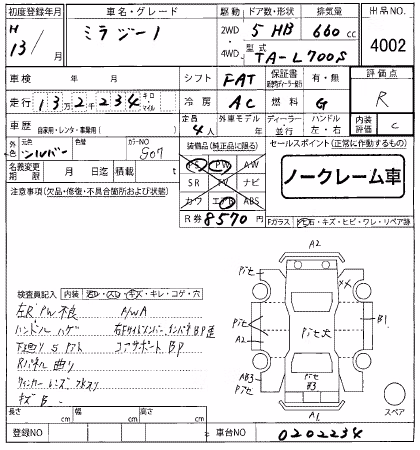 初度登録年月 車名・グレード 駆動 ドア数・形状 排気量 出品NO.
H 13/ 月 ミラ ジーノ 2WD 4WD 5 HB 660 cc 4002
型式 TA-L700S
車検 年 月 シフト FAT 保証書 有・無 評価点
走行 13万2千234 キロ マイル 冷房 AC 燃料 G R
車歴 自家用・レンタ・事業用( ) 定員 4人 外車モデル 年 ディーラー 並行 ハンドル 左・右 内装評価 C
外色 元色 シルバー 色替 カラーNO S07 装備品(純正品に限る) セールスポイント(正常に作動するもの)
名義変更期限 月 日迄 積載 t PS PW AW
ノークレーム車
注意事項(欠品・修復・不具合箇所および状態) SR TV ナビ
カワ エアB ABS
R券 8570円
Fガラス 石・キズ・ヒビ・ワレ・リペア跡
A2
検査員記入 内装 ・スレ・キズ・キレ・コゲ・穴
左R PW不良 AWA
ハンドル ハゲ 右Fサイドメンバー、インパネBP
下廻り S アト コアサポート BP
Rパネル 曲り
ウインカー レンズ
キズ B
長さ cm 幅 cm 高さ cm
A2
B1
AB3
B3
A1
スペア
登録NO 車台NO 0202234